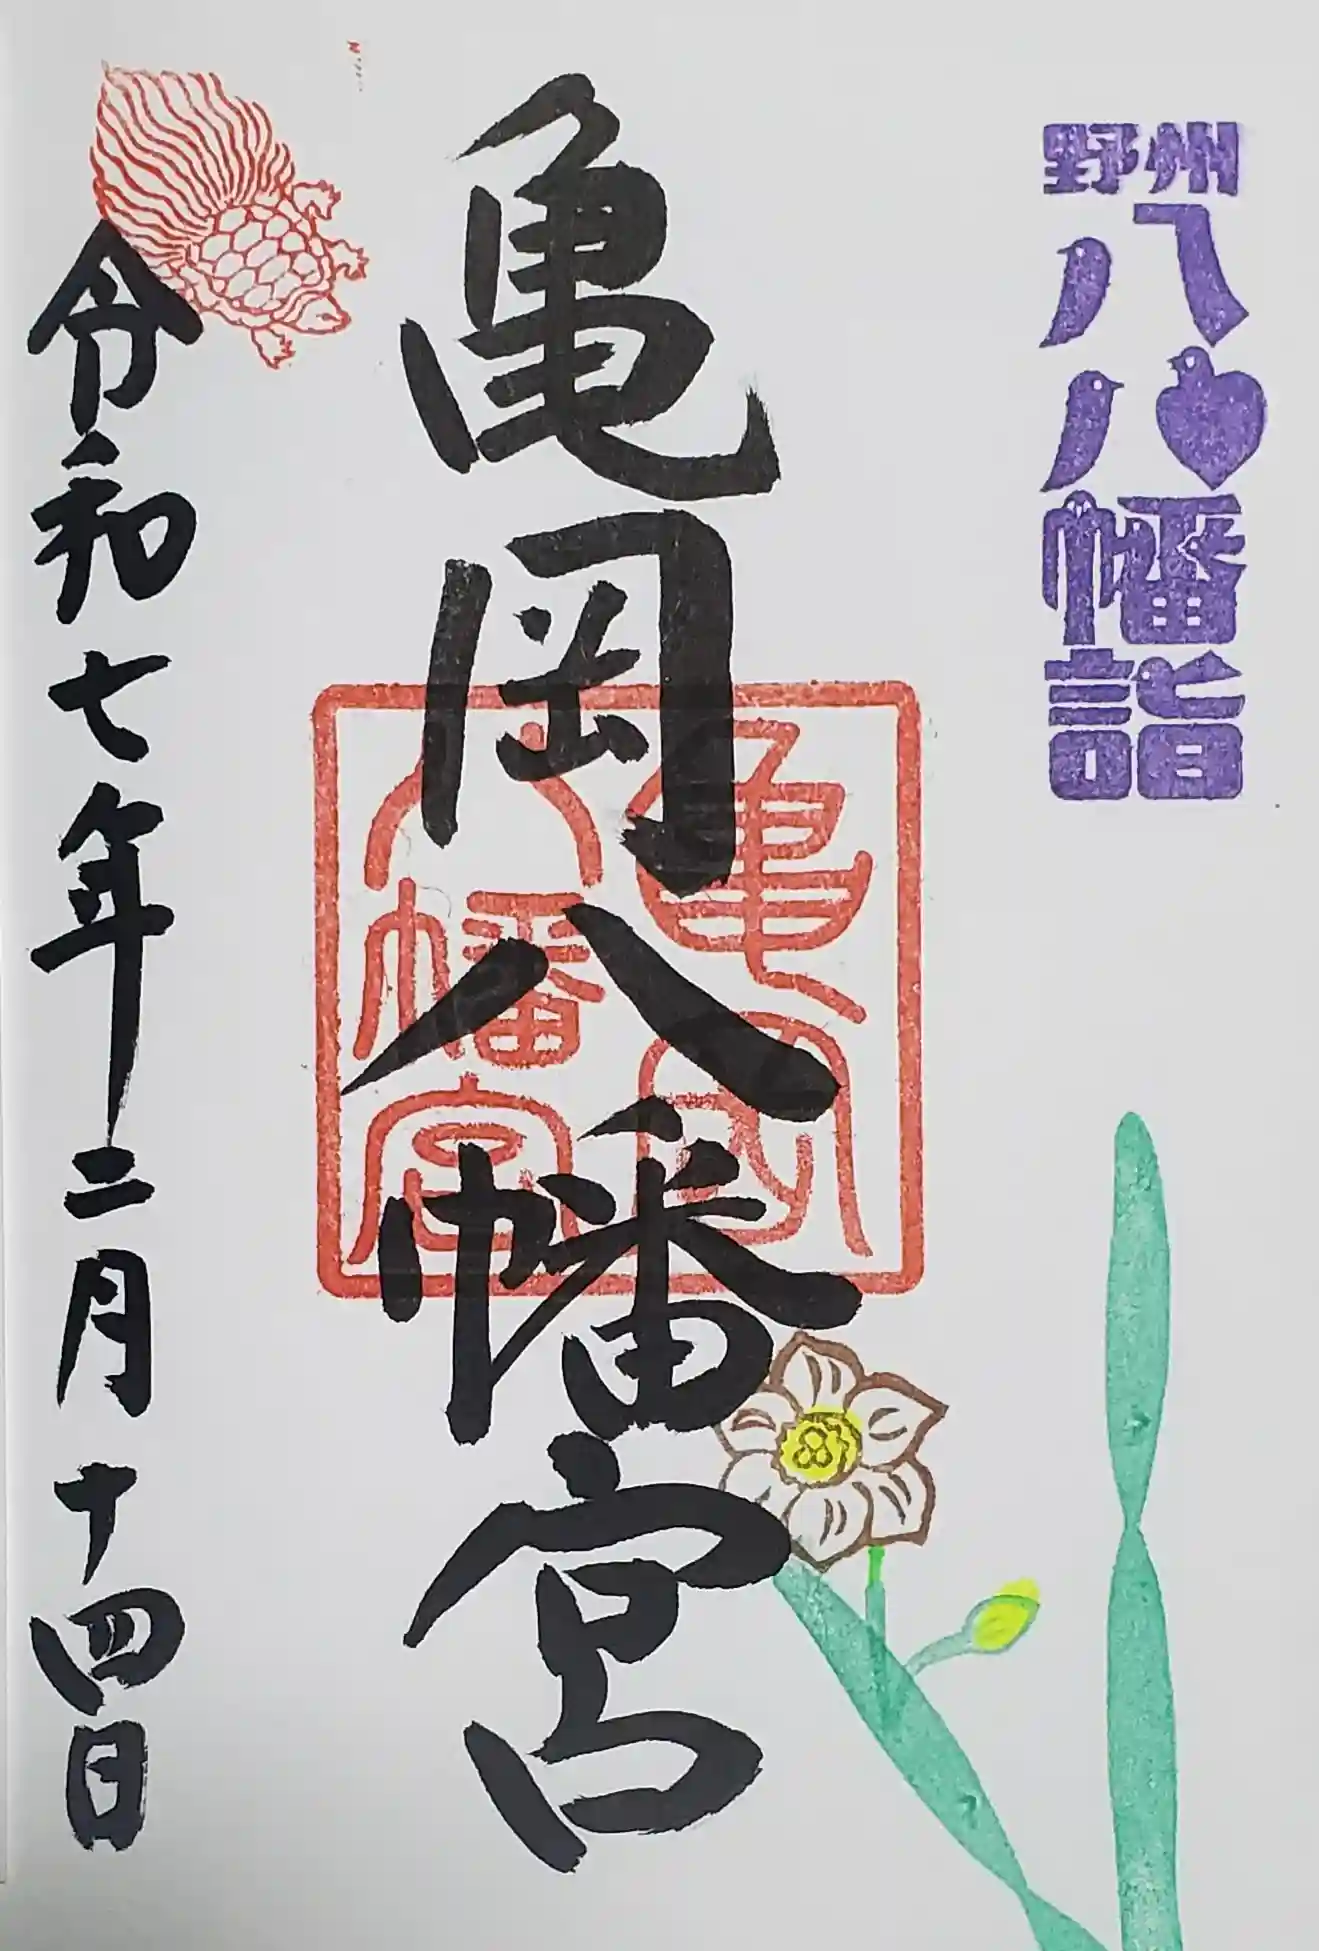 野州
八八幡詣
亀岡八幡宮
亀岡
八幡宮
令和七年二月十四日